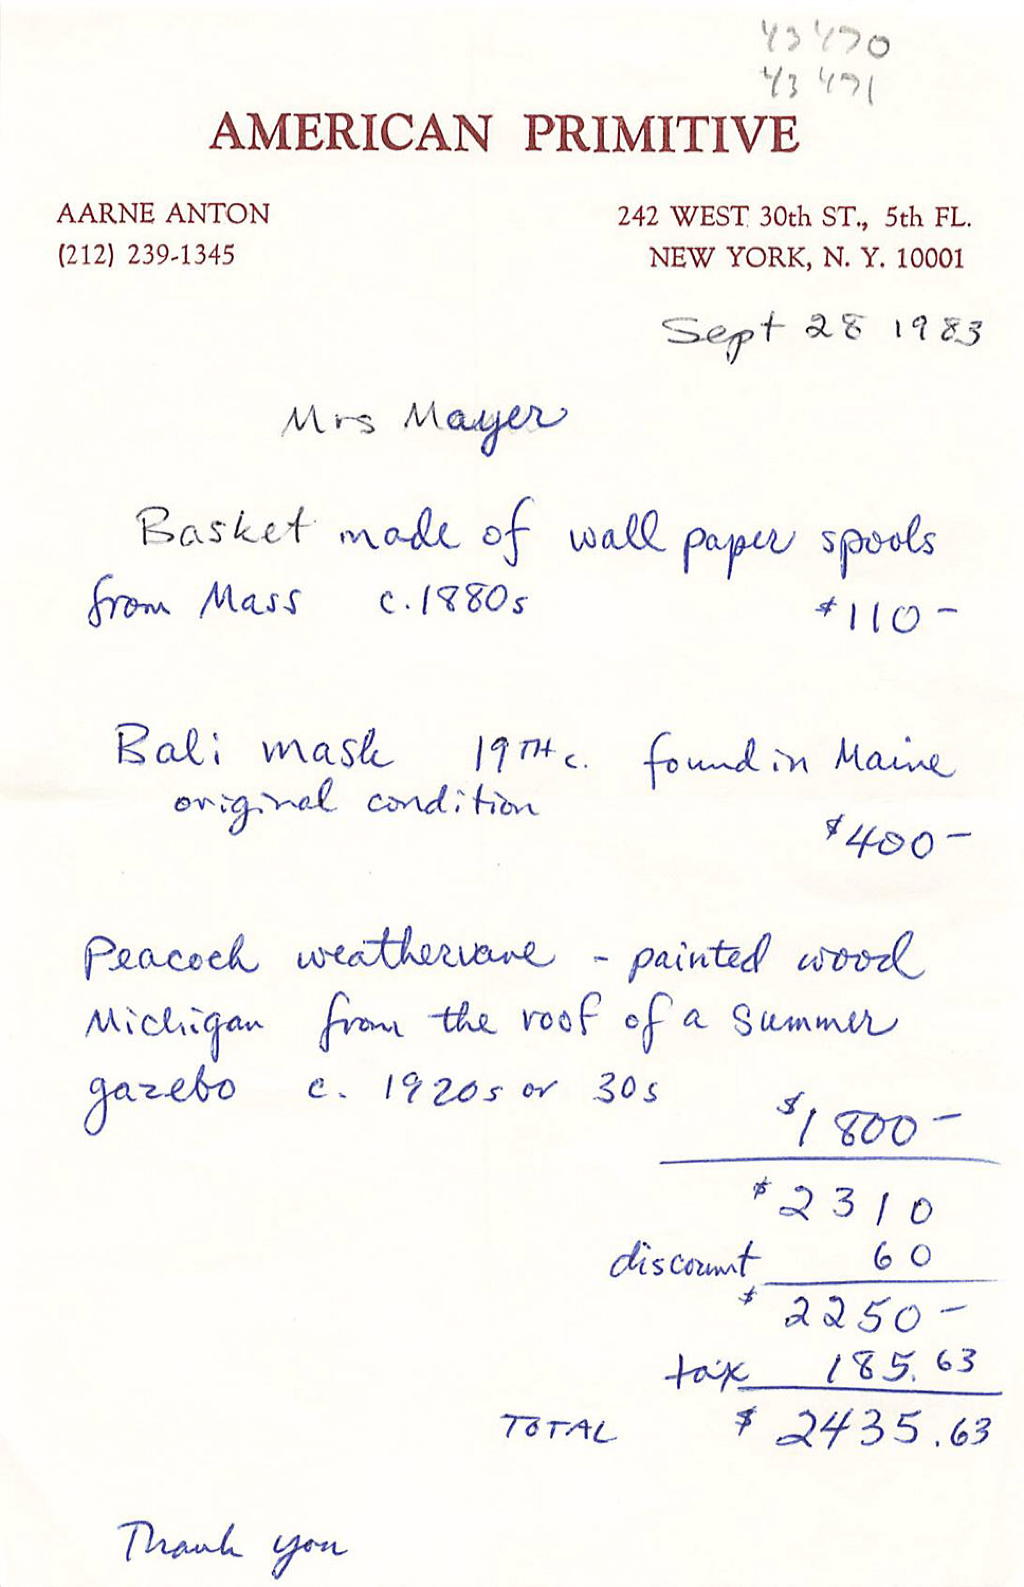 43470
43471
AMERICAN PRIMITIVE
AARNE ANTON
(212) 239-1345
242 WEST 30th ST., 5th FL.
NEW YORK, N. Y. 10001
Sept 28 1983
Mrs Mayer
Basket made of wall paper spools
from Mass c.1880s $110-
Bali mask 19TH c. found in Maine
original condition
$400-
Peacock weathervane - painted wood
Michigan from the roof of a summer
gazebo c. 1920s or 30s
$1800-
$2310
discount 60
$2250-
tax 185.63
TOTAL $2435.63
Thank you